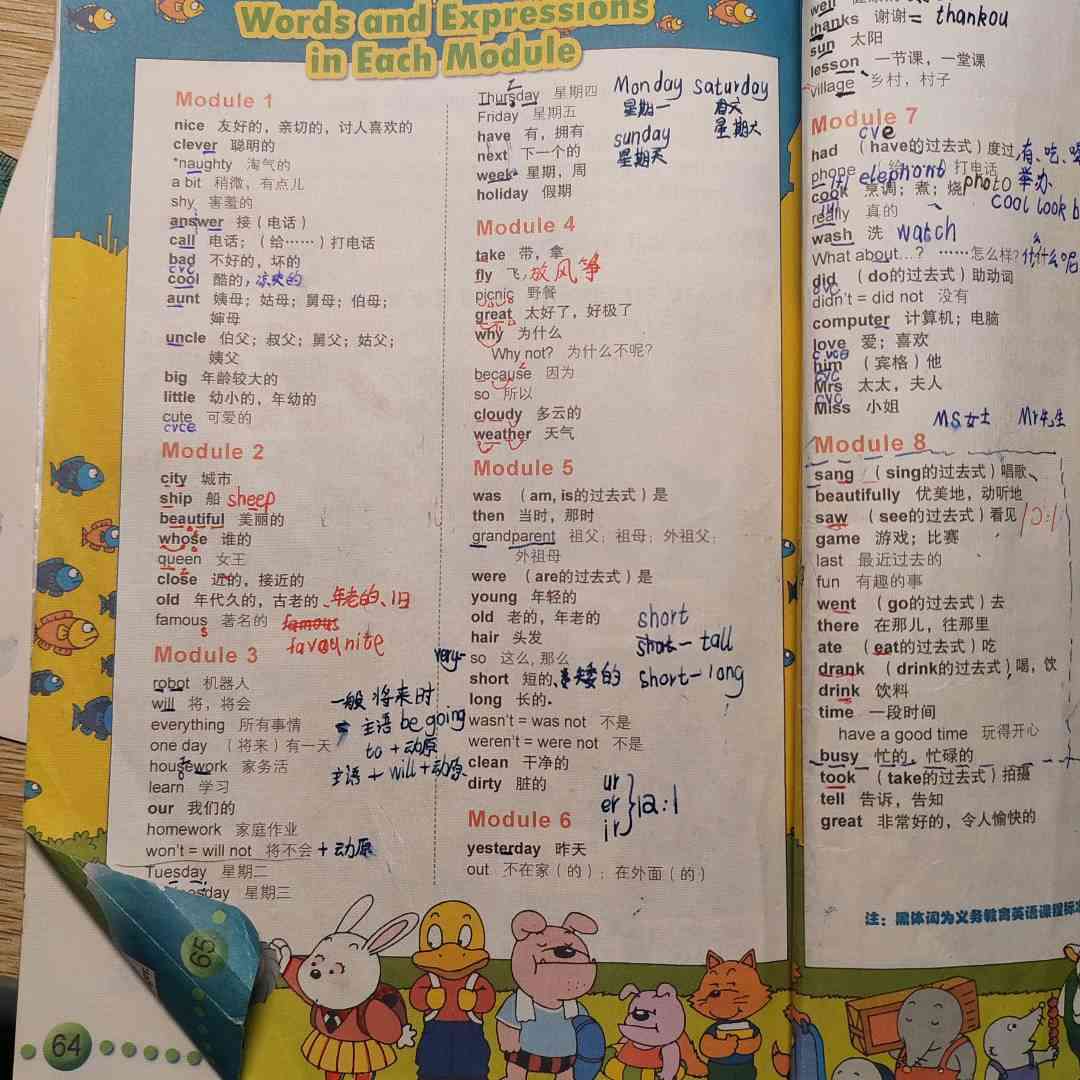 Words and Expressions
in Each Module
Module 1
nice 友好的，亲切的，讨人喜欢的
clever 聪明的
*naughty 淘气的
a bit 稍微，有点儿
shy 害羞的
answer 接（电话）
call 电话；（给……）打电话
bad 不好的，坏的
cvc
cool 酷的，凉爽的
aunt 姨母；姑母；舅母；伯母；
婶母
uncle 伯父；叔父；舅父；姑父；
姨父
big 年龄较大的
little 幼小的，年幼的
cute 可爱的
cvce
Module 2
city 城市
ship 船 sheep
beautiful 美丽的
whose 谁的
queen 女王
close 近的，接近的
old 年代久的，古老的、年老的、旧
famous 著名的 famous
s favounite
Module 3
robot 机器人
will 将，将会
everything 所有事情
one day （将来）有一天
housework 家务活
learn 学习
our 我们的
homework 家庭作业
won't = will not 将不会 + 动原
Tuesday 星期二
sday 星期三
一般将来时
主语 be going
to + 动原
主语 + will + 动原
Thursday 星期四
Friday 星期五
have 有，拥有
next 下一个的
week 星期，周
holiday 假期
Monday saturday
星期一
sunday 星期六
星期天
Module 4
take 带，拿
fly 飞，放风筝
picnic 野餐
great 太好了，好极了
why 为什么
Why not? 为什么不呢?
because 因为
so 所以
cloudy 多云的
weather 天气
Module 5
was （am, is的过去式）是
then 当时，那时
grandparent 祖父；祖母；外祖父；
外祖母
were （are的过去式）是
young 年轻的
old 老的，年老的
hair 头发
very- so 这么, 那么
short 短的、矮的
long 长的
wasn't = was not 不是
weren't = were not 不是
clean 干净的
dirty 脏的
short
short - tall
short - long
Module 6
yesterday 昨天
out 不在家（的）；在外面（的）
ur
er
ir
12:1
well
thanks 谢谢 = thankou
sun 太阳
lesson 一节课，一堂课
village 乡村，村子
Module 7
cve
had （have的过去式）度过，有、吃、喝
phone 打电话
elephont photo 举办
cook 烹调；煮；烧
cool look
really 真的
wash 洗 watch
What about...? ……怎么样?
did （do的过去式）助动词
cvc
didn't = did not 没有
computer 计算机；电脑
love 爱；喜欢
cvce
him （宾格）他
cvc
Mrs 太太，夫人
cvc
Miss 小姐
MS女士 Mr先生
Module 8
sang （sing的过去式）唱歌
beautifully 优美地，动听地
saw （see的过去式）看见
game 游戏；比赛
last 最近过去的
fun 有趣的事
went （go的过去式）去
there 在那儿，往那里
ate （eat的过去式）吃
drank （drink的过去式）喝，饮
drink 饮料
time 一段时间
have a good time 玩得开心
busy 忙的，忙碌的
took （take的过去式）拍摄
tell 告诉，告知
great 非常好的，令人愉快的
注：黑体词为义务教育英语课程标
64
65